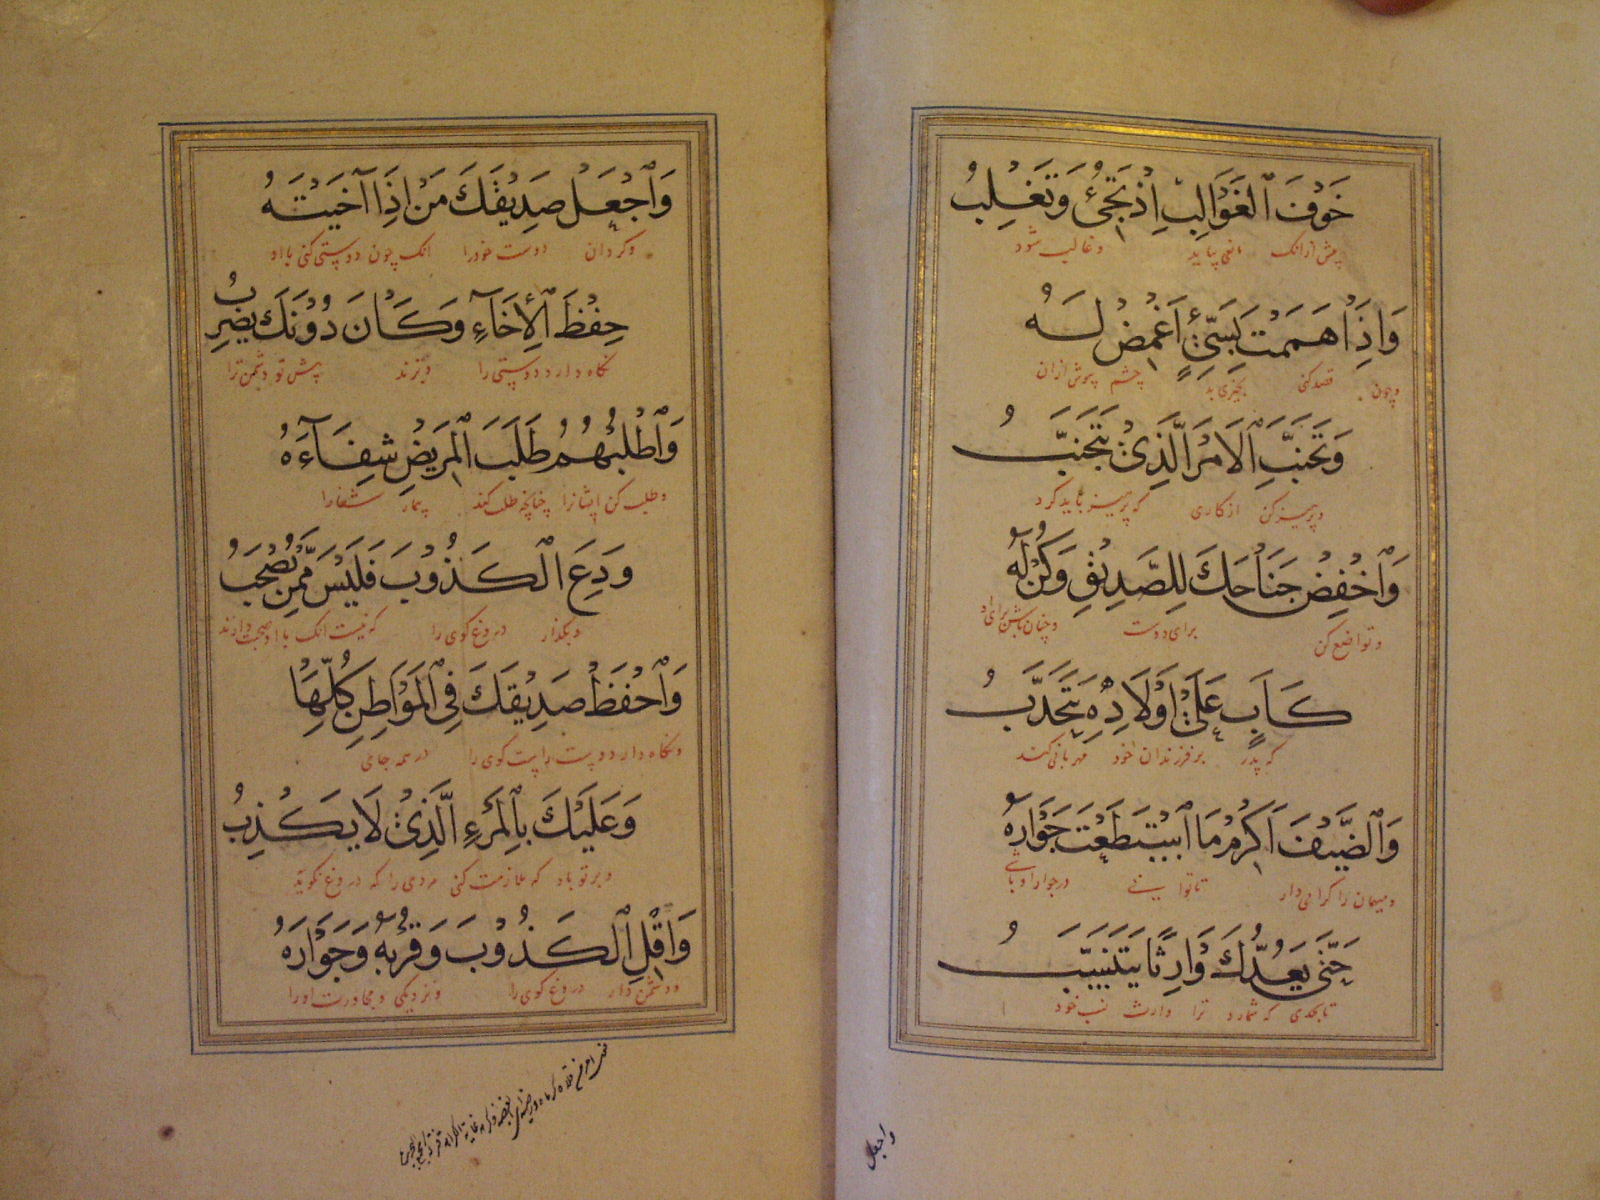 خَوْفَ ٱلْغَوَالِبِ اِذْ تَجِیْٔ وَتَغْلِبُ
پیش از انک ناهی بیاید وغالب شود
وَاِذَا هَمَمْتَ بِسَيِّیٍٔ اَغْمِضْ لَهُ
وچون قصد کنی بچیزی بد چشم پوش از ان
وَتَجَنَّبِ ٱلْاَمْرَ الَّذِيْ يَتَجَنَّبُ
وپرهیز کن از کاری که پرهیز باید کرد
وَٱخْفِضْ جَنَاحَكَ لِلصَّدِيْقِ وَكُنْ لَهُ
وتواضع کن برای دوست وچنان باش برای او
كَاَبٍ عَلَيْ اَوْلَادِهِ يَتَحَدَّبُ
که پدر بر فرزندان خود مهربانی کند
وَٱلضَّيْفَ اَكْرِمْ مَا ٱسْتَطَعْتَ جَوَارَهُ
ومیهمان را کرامی دار تا توانی در جوار او باشی
حَتّٰی يَعُدَّكَ وَارِثًا يَتَنَسَّبُ
تا بحدی که شمارد ترا وارث نسب خود
واجعل
وَٱجْعَلْ صَدِيْقَكَ مَنْ اِذَا آخَيْتَهُ
وکردان دوست خود را انک چون دوستی کنی با او
حِفْظَ ٱلْاِخَآءِ وَكَانَ دُوْنَكَ يَضْرِبُ
نکاه دارد دوستی را وزند پیش تو دشمن ترا
وَٱطْلُبْهُمُ طَلَبَ ٱلْمَرِيْضِ شِفَآءَهُ
وطلب کن ایشان را چنانچه طلب کند بیمار شفا را
وَدَعِ الْكَذُوْبَ فَلَيْسَ مِمَّنْ يُصْحَبُ
وبکذار دروغ کوی را که نیست انک با او صحبت دارند
وَٱحْفَظْ صَدِيْقَكَ فِي ٱلْمَوَاطِنِ كُلِّهَا
ونکاه دار دوست راست کوی را در همه جای
وَعَلَيْكَ بِٱلْمَرْءِ الَّذِيْ لَا يَكْذِبُ
وبر تو باد که ملازمت کنی مردی را که دروغ نکوید
وَٱقْلِ ٱلْكَذُوْبَ وَقُرْبَهُ وَجَوَارَهُ
ودشمن دار دروغ کوی را ونزدیکی ومجاورت او را